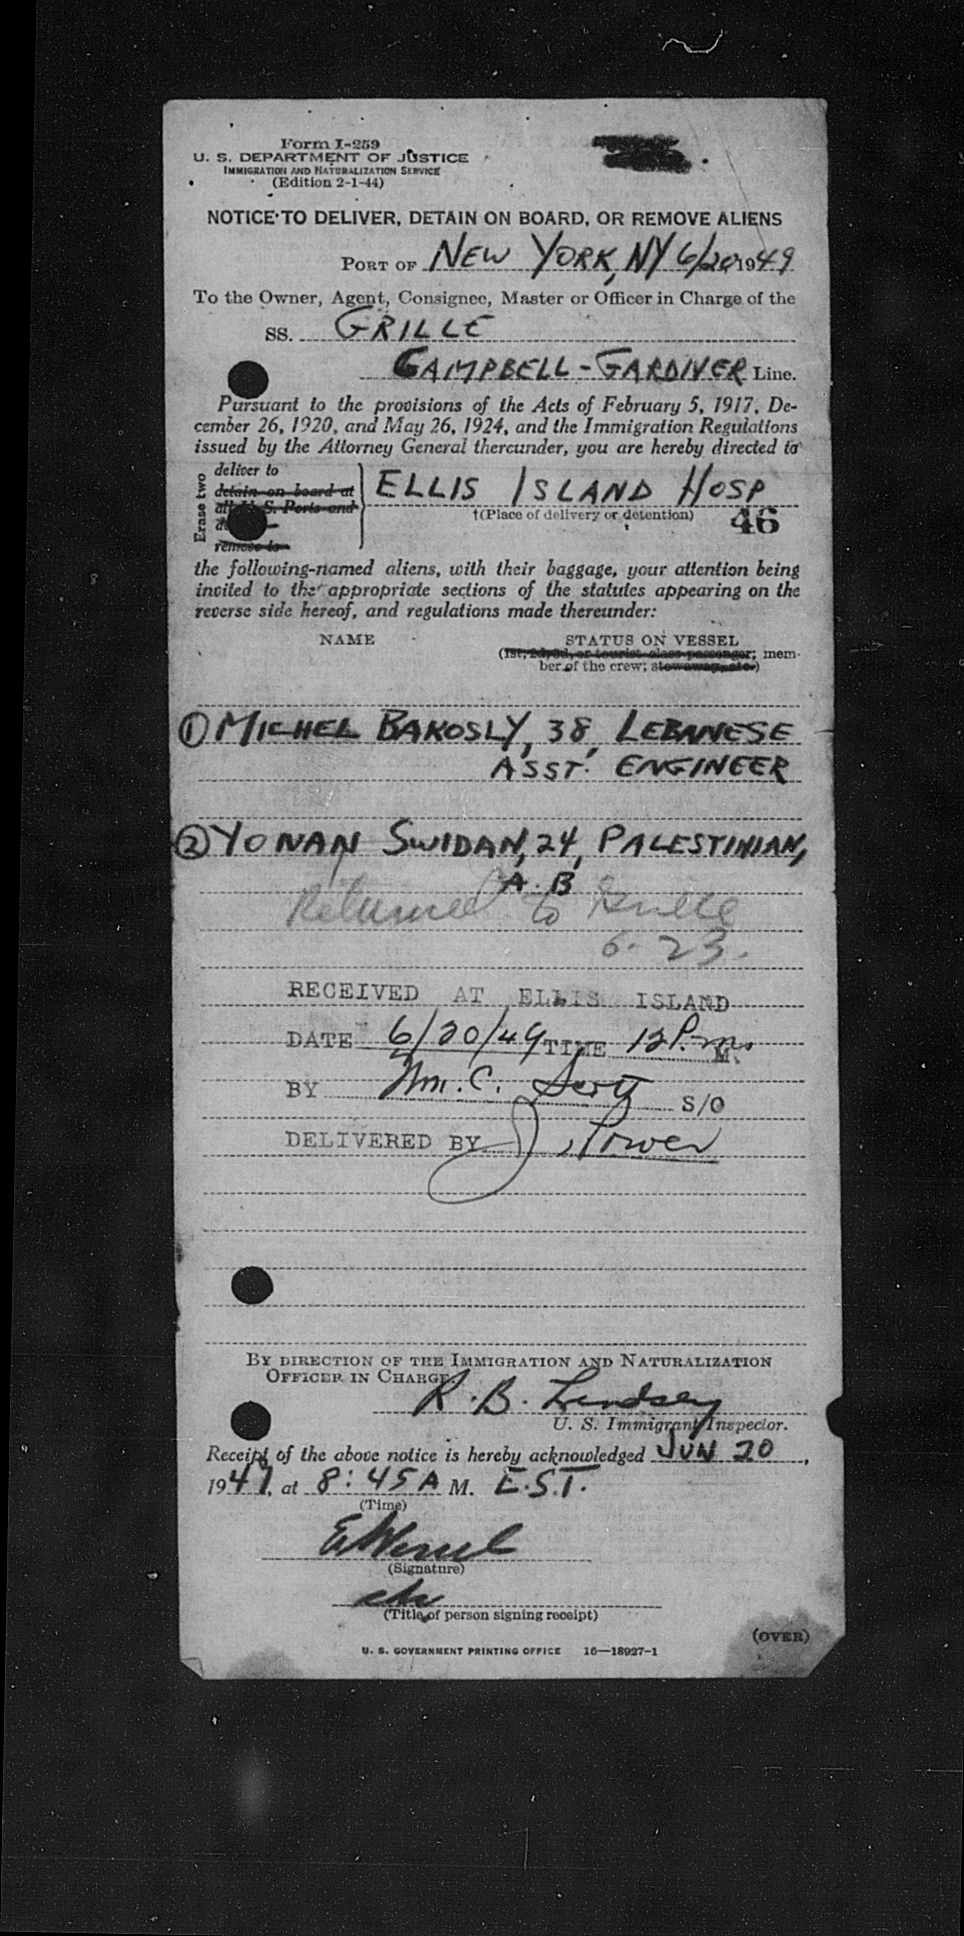 Form I-259
U. S. DEPARTMENT OF JUSTICE
IMMIGRATION AND NATURALIZATION SERVICE
(Edition 2-1-44)
NOTICE TO DELIVER, DETAIN ON BOARD, OR REMOVE ALIENS
PORT OF NEW YORK, NY 6/20 1949
To the Owner, Agent, Consignee, Master or Officer in Charge of the
SS. GRILLE
CAMPBELL-GARDINER Line.
Pursuant to the provisions of the Acts of February 5, 1917, De-
cember 26, 1920, and May 26, 1924, and the Immigration Regulations
issued by the Attorney General thereunder, you are hereby directed to
Erase two
deliver to
detain on board at
all U. S. Ports and
remove to
ELLIS ISLAND HOSP
†(Place of delivery or detention)
46
the following-named aliens, with their baggage, your attention being
invited to the appropriate sections of the statutes appearing on the
reverse side hereof, and regulations made thereunder:
NAME STATUS ON VESSEL
(1st, 2d, 3d, or tourist class passenger; mem-
ber of the crew; stowaway, etc.)
① MICHEL BAKOSLY, 38, LEBANESE
ASST. ENGINEER
② YONAN SWIDAN, 24, PALESTINIAN,
A.B
Returned to Grille
6-23.
RECEIVED AT ELLIS ISLAND
DATE 6/20/49 TIME 12 P.m. M.
BY Wm. C. S/O
DELIVERED BY J Power
BY DIRECTION OF THE IMMIGRATION AND NATURALIZATION
OFFICER IN CHARGE.
R. B. Lindsey
U. S. Immigrant Inspector.
Receipt of the above notice is hereby acknowledged JUN 20,
1949, at 8:45 A M. E.S.T.
(Time)
(Signature)
(Title of person signing receipt)
(OVER)
U. S. GOVERNMENT PRINTING OFFICE 16—18927-1